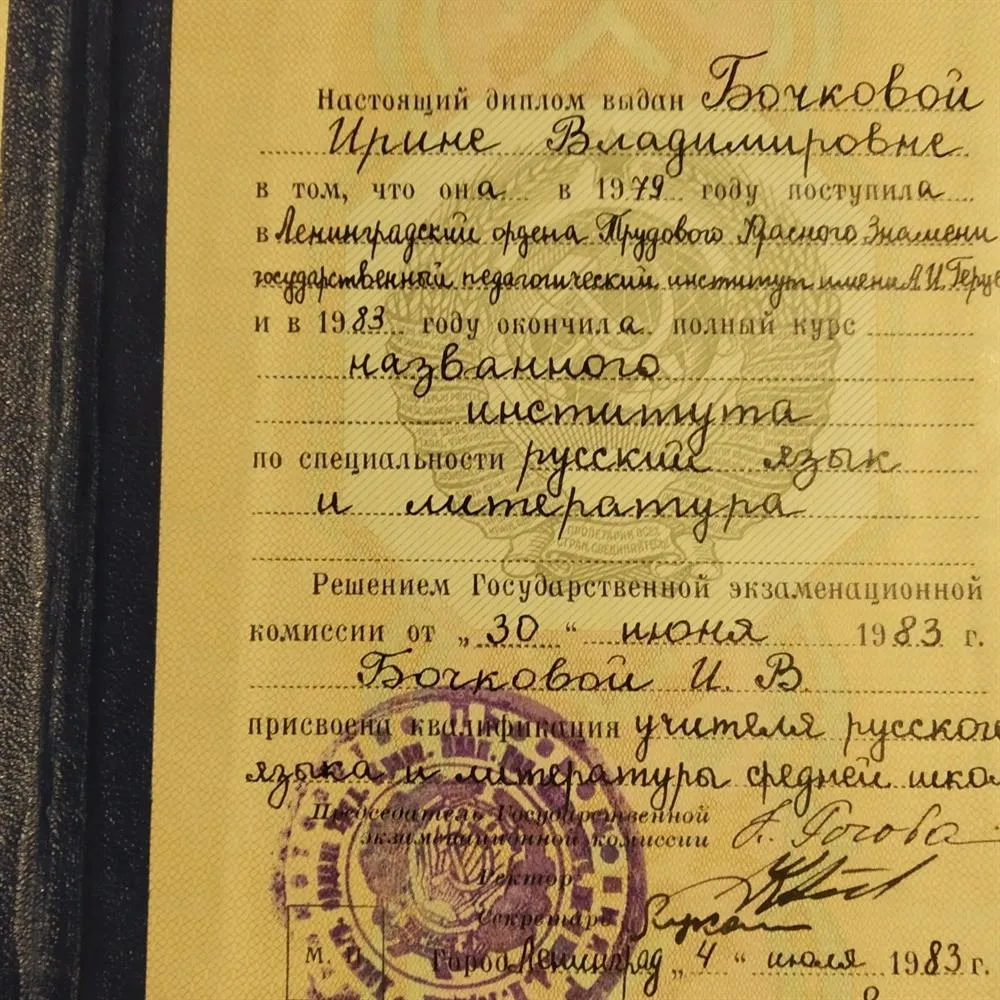 Настоящий диплом выдан Бочковой
Ирине Владимировне
в том, что она в 1979 году поступила
в Ленинградский ордена Трудового Красного Знамени
государственный педагогический институт имени А.И.Герце
и в 1983 году окончила полный курс
названного
института
по специальности русский язык
и литература
ПРОЛЕТАРИИ ВСЕХ
СТРАН, СОЕДИНЯЙТЕСЬ!
Решением Государственной экзаменационной
комиссии от „30“ июня 1983 г.
Бочковой И. В.
присвоена квалификация учителя русского
языка и литературы средней шко
Председатель Государственной
экзаменационной комиссии
Ректор
Секретарь
М. П.
Город Ленинград „4“ июля 1983 г.